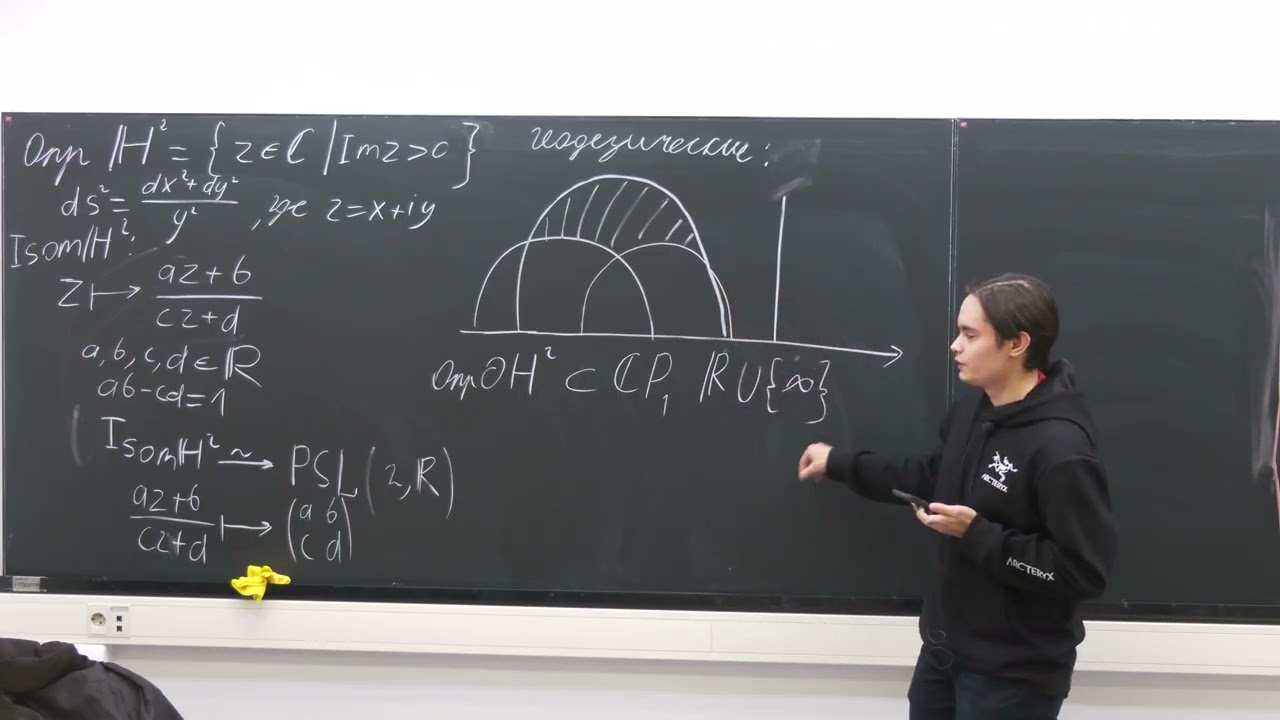 Опр ℍ² = {z ∈ ℂ | Im z > 0}
ds² = (dx² + dy²)/y², где z = x + iy
Isom ℍ²:
z ↦ (az + b)/(cz + d)
a, b, c, d ∈ ℝ
ab - cd = 1
Isom ℍ² ~→ PSL(2, ℝ)
(az + b)/(cz + d) ↦ (a b
c d)
геодезические:
Опр ∂ℍ² ⊂ ℂP₁ ℝ ∪ {∞}
ARCTERYX
ARCTERYX